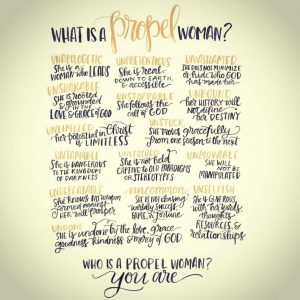 WHAT IS A propel WOMAN?
UNAPOLOGETIC
She is a
WOMAN who LEADS
UNPRETENTIOUS
She is real-
DOWN TO EARTH,
& accessible
UNASHAMED
SHE does not minimize
or hide who GOD
HAS made her
UNSHAKABLE
SHE is ROOTED
& grounded
in the
LOVE & GRACE of GOD
UNSTOPPABLE
She follows the
call of GOD
UNBOUND
her HISTORY will
NOT define
her DESTINY
UNLIMITED
her potential in Christ
is LIMITLESS
UNSTUCK
She moves gracefully
from one season to the next
UNTAMABLE
She is DANGEROUS
TO THE KINGDOM
OF DARKNESS
UNLEASHED
She is not held
CAPTIVE to OLD PARADIGMS
or STEREOTYPES
UNMOVABLE
SHE WILL
NOT BE
MANIPULATED
UNDEFLATABLE
She knows no weapon
formed against
HER will PROSPER
uncommon
She is not chasing
worldly success,
FAME, or FORTUNE
UNSELFISH
SHE is GENEROUS
with her words
thoughts,
RESOURCES, &
relationships
UNDONE
She is undone by the love, grace
goodness, kindness & mercy of GOD
WHO IS A PROPEL WOMAN?
you are